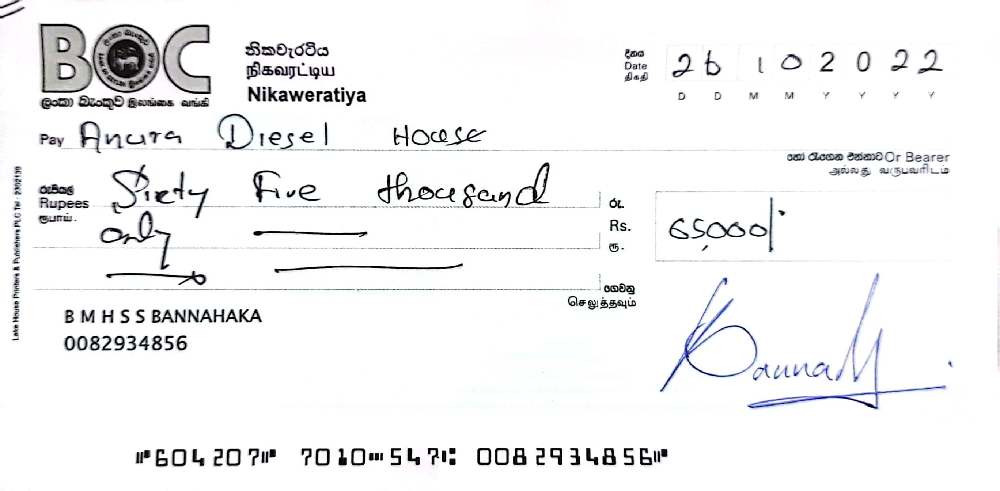 BOC
ලංකා බැංකුව இலங்கை வங்கி
නිකවැරටිය
நிகவரட்டிய
Nikaweratiya
දිනය
Date
திகதி
26 10 2022
D D M M Y Y Y Y
Pay Anura Diesel House
හෝ රැගෙන එන්නාට Or Bearer
அல்லது வருபவரிடம்
රුපියල්
Rupees
ரூபாய்.
Sixty Five thousand
only
රු.
Rs.
ரூ.
65,000/-
ගෙවනු
செலுத்தவும்
B M H S S BANNAHAKA
0082934856
Lake House Printers & Publishers PLC Tel : 2302139
⑈604207⑈ 7010⑉547⑆ 0082934856⑈